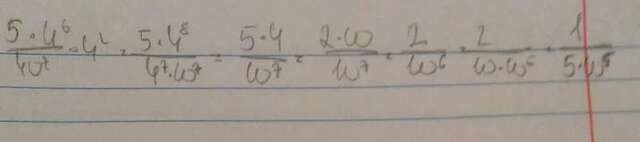 5·4⁶/40⁷ · 4² = 5·4⁸/4⁷·10⁷ = 5·4/10⁷ = 2·10/10⁷ = 2/10⁶ = 2/10·10⁵ = 1/5·10⁵